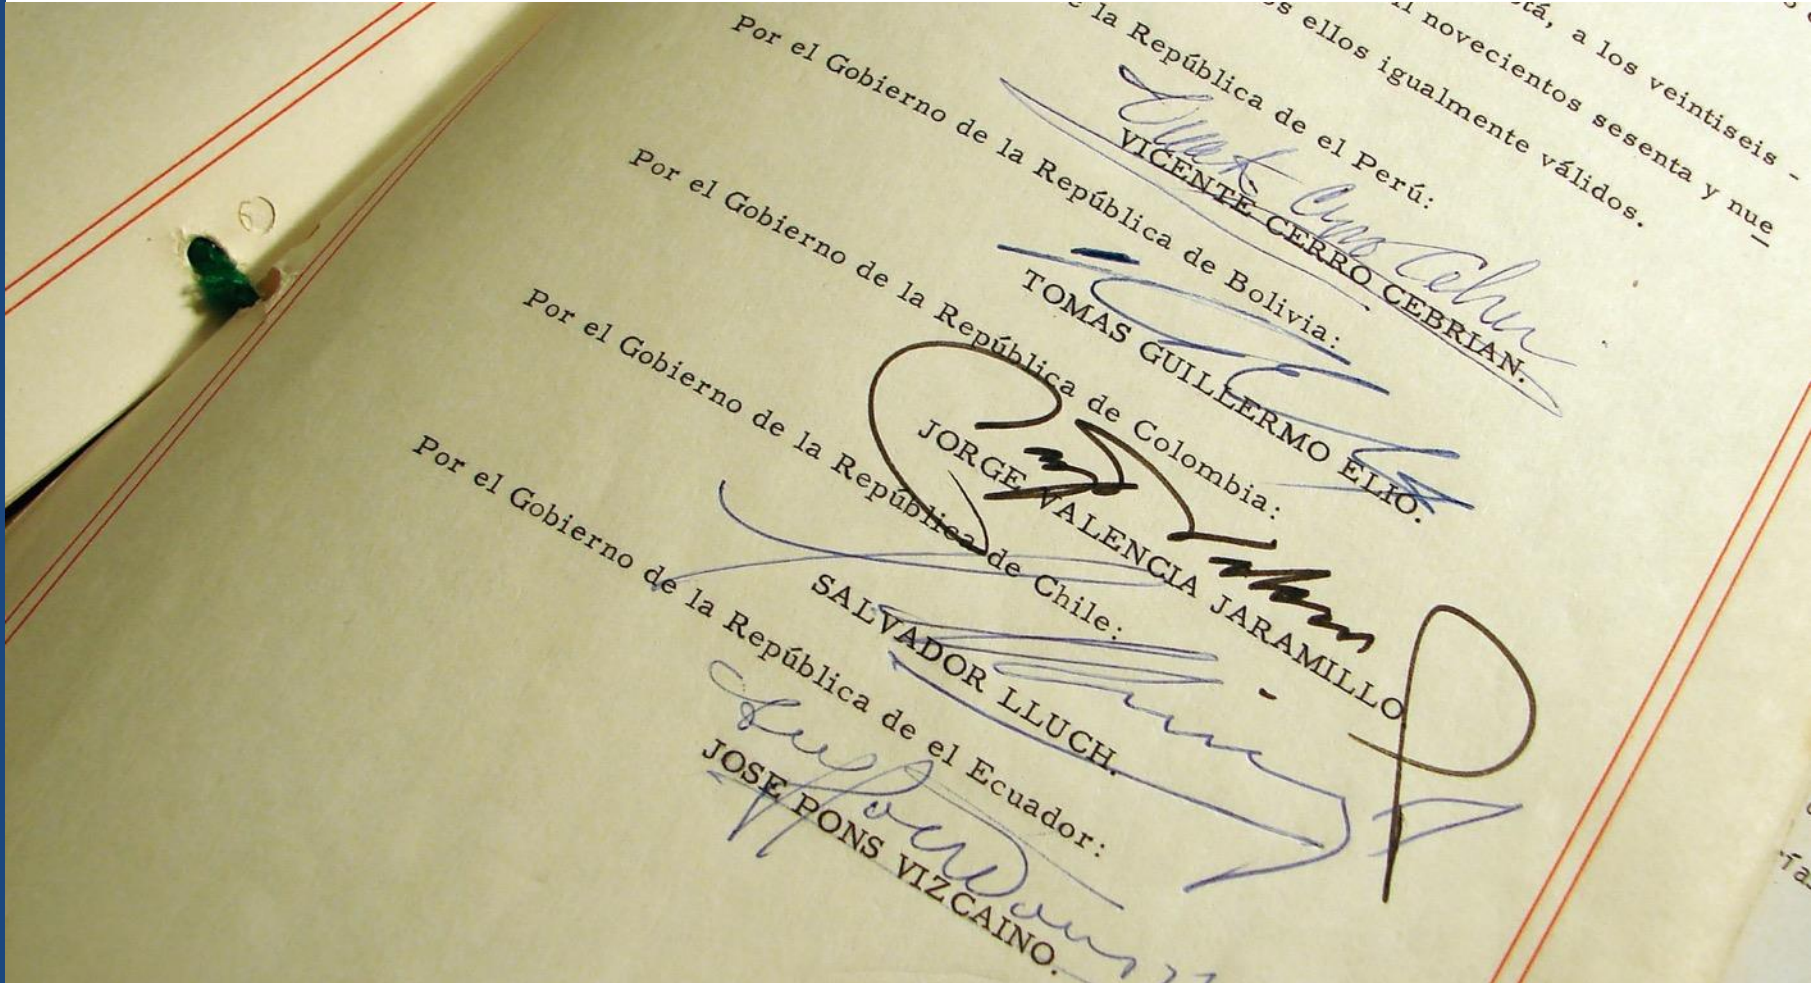 tá, a los veintiseis -
novecientos sesenta y nue
ellos igualmente válidos.
la República de el Perú:
VICENTE CERRO CEBRIAN.
Por el Gobierno de la República de Bolivia:
TOMAS GUILLERMO ELIO.
Por el Gobierno de la República de Colombia:
JORGE VALENCIA JARAMILLO
Por el Gobierno de la República de Chile:
SALVADOR LLUCH.
Por el Gobierno de la República de el Ecuador:
JOSE PONS VIZCAINO.